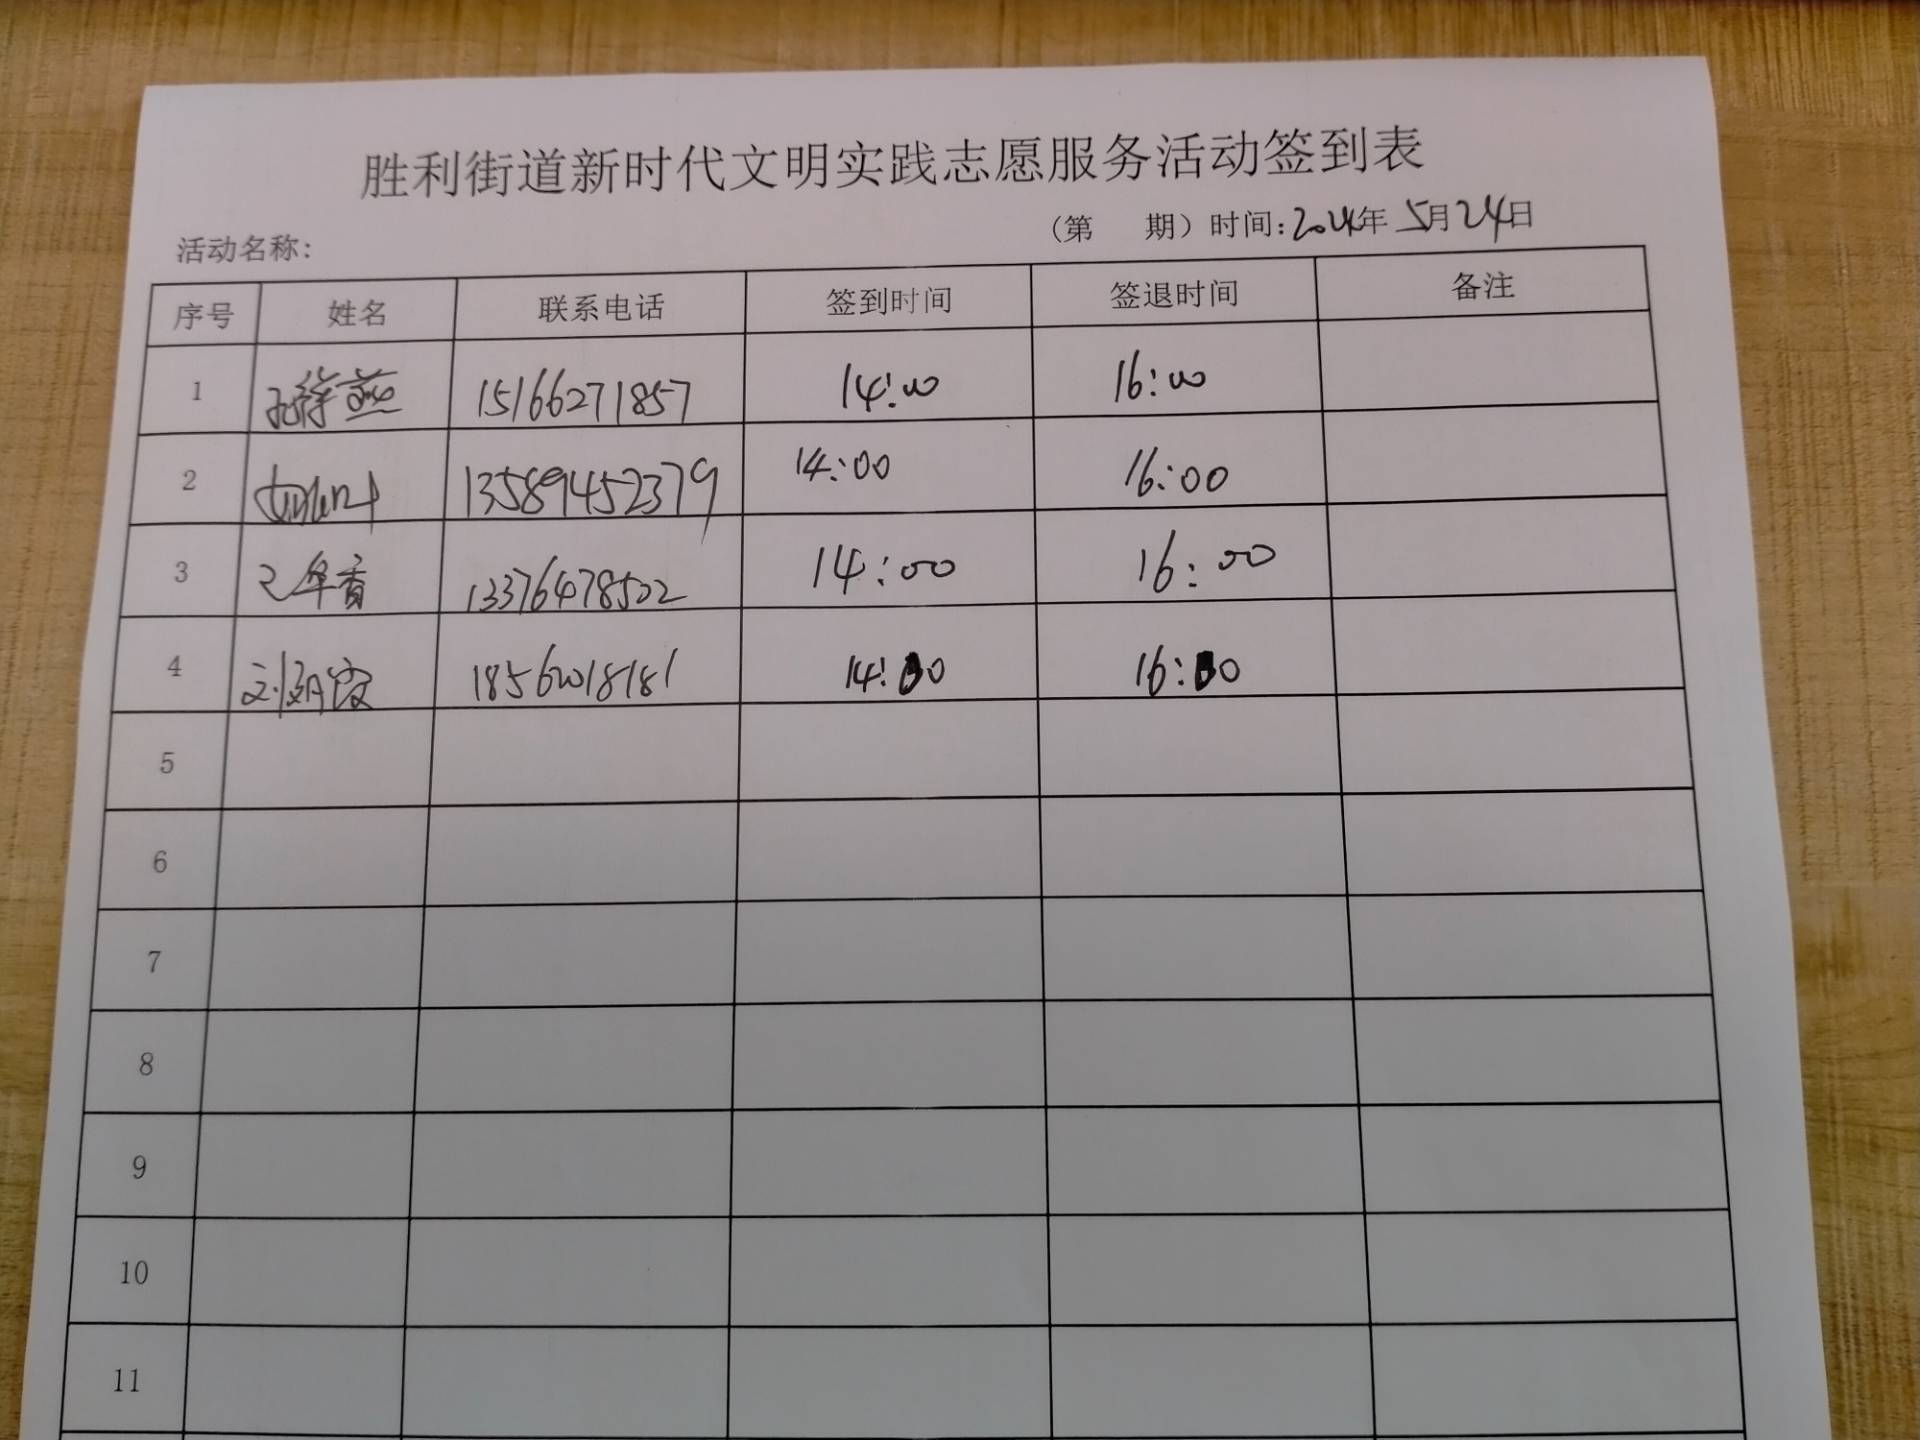 胜利街道新时代文明实践志愿服务活动签到表
活动名称: (第 期)时间:2024年5月24日
序号 姓名 联系电话 签到时间 签退时间 备注
1 15166271857 14:00 16:00
2 13589452379 14:00 16:00
3 13376478502 14:00 16:00
4 18562018181 14:00 16:00
5
6
7
8
9
10
11